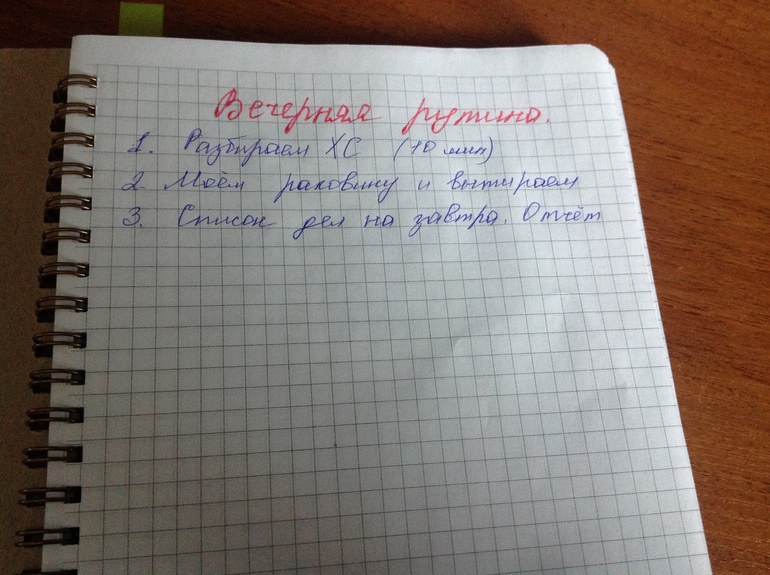 Вечерняя рутина.
1. Разбираем ХС (10 мин)
2. Моём раковину и вытираем
3. Список дел на завтра. Отчёт